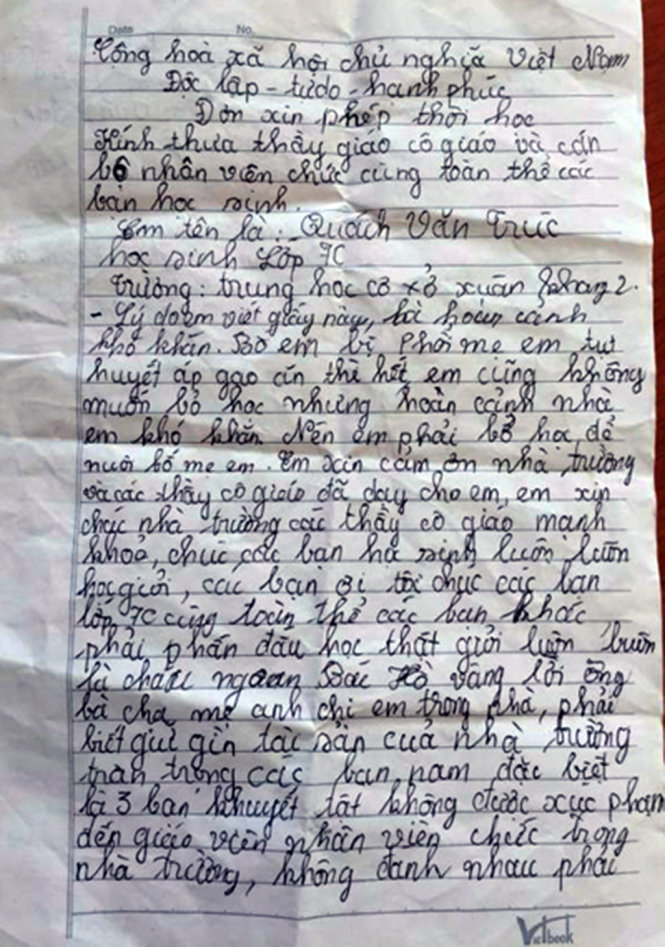 Date No.
Cộng hoà xã hội chủ nghĩa Việt Nam
Độc lập - tự do - hanh phúc
Đơn xin phép thôi học
Kính thưa thầy giáo cô giáo và cán
bộ nhân viên chức cùng toàn thể các
bạn học sinh.
Em tên là: Quách Văn Trúc
học sinh Lớp 7C
Trường: trung học cơ xở xuân khang 2.
- Lý do em viết giấy này, là hoàn cảnh
khó khăn. Bố em bị phổi mẹ em tụt
huyết áp gạo ăn thì hết em cũng không
muốn bỏ học nhưng hoàn cảnh nhà
em khó khăn. Nên em phải bỏ học để
nuôi bố mẹ em. Em xin cảm ơn nhà trường
và các thầy cô giáo đã dạy cho em, em xin
chúc nhà trường các thầy cô giáo mạnh
khoẻ, chúc các bạn học sinh luôn luôn
học giỏi, các bạn ơi tôi chúc các bạn
lớp 7C cùng toàn thể các bạn khác
phải phấn đấu học thật giỏi luôn luôn
là cháu ngoan Bác Hồ vâng lời ông
bà cha mẹ anh chị em trong nhà, phải
biết giữ gìn tài sản của nhà trường
trân trọng các bạn nam đặc biệt
là 3 bạn khuyết tật không được xúc phạm
đến giáo viên nhân viên chức trong
nhà trường, không đánh nhau phải
Vietbook